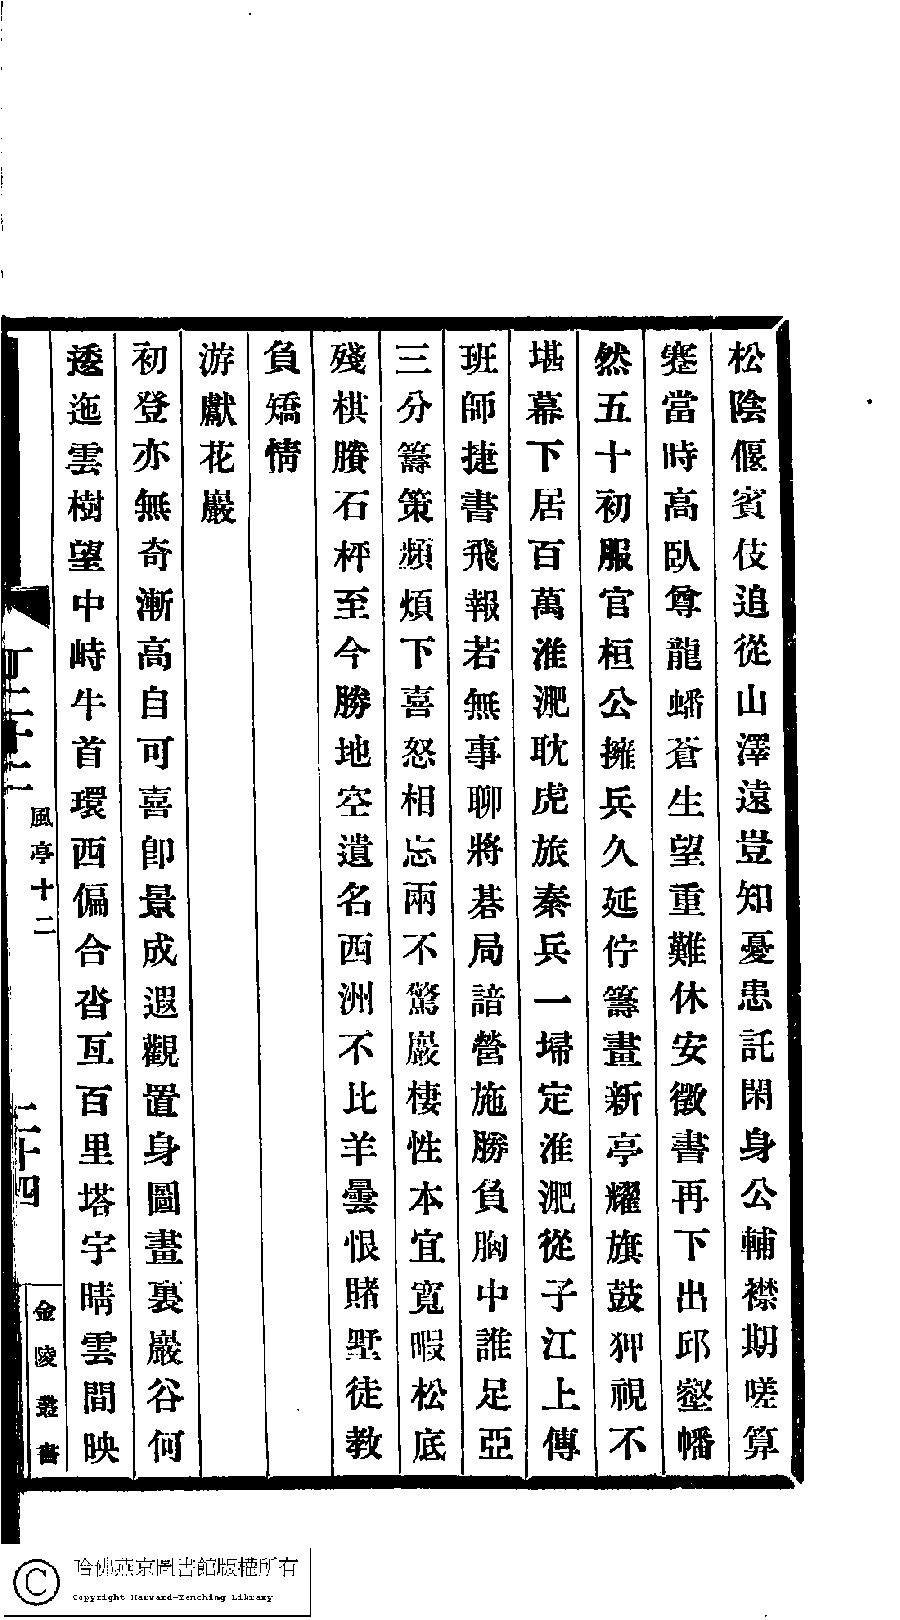 松陰偃賓伎追從山澤遠豈知憂患託閑身公輔襟期嗟算
蹇當時高臥尊龍蟠蒼生望重難休安徵書再下出邱壑幡
然五十初服官桓公擁兵久延佇籌畫新亭耀旗鼓狎視不
堪幕下居百萬淮淝耽虎旅秦兵一埽定淮淝從子江上傳
班師捷書飛報若無事聊將碁局諳營施勝負胸中誰足亞
三分籌策頻煩下喜怒相忘兩不驚巖棲性本宜寬暇松底
殘棋賸石枰至今勝地空遺名西洲不比羊曇恨賭墅徒教
負矯情
游獻花巖
初登亦無奇漸高自可喜卽景成遐觀置身圖畫裏巖谷何
逶迤雲樹望中峙牛首環西偏合沓亙百里塔宇晴雲間映
風亭十二
二十四
金陵叢書
哈佛燕京圖書館版權所有
Copyright Harvard-Yenching Library